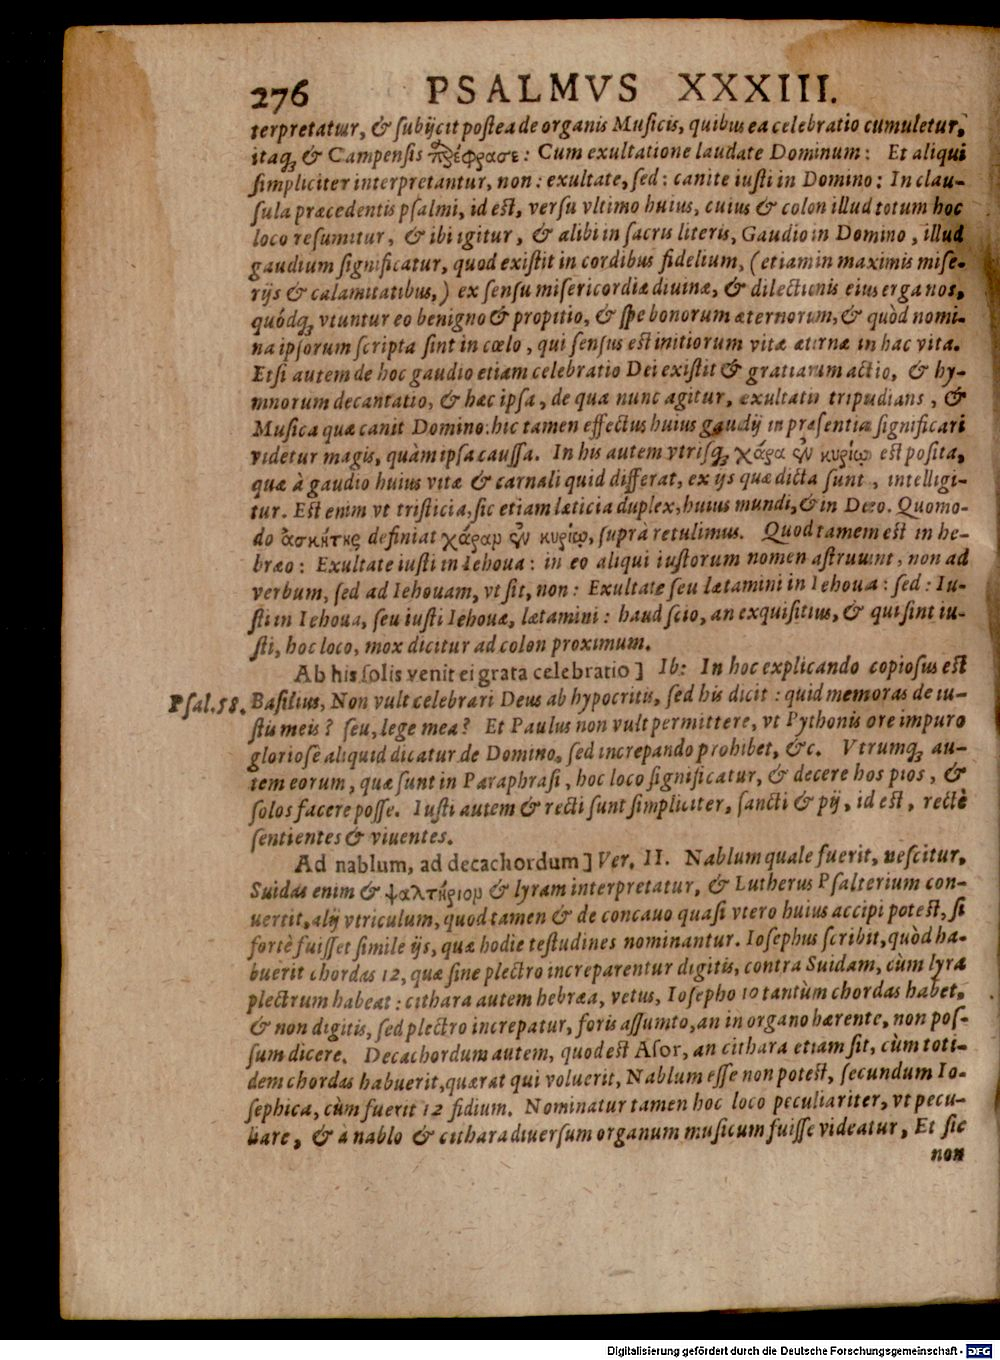 276 PSALMVS XXXIII.
terpretatur, & subijcit postea de organis Musicis, quibus ea celebratio cumuletur,
itaq; & Campensis : Cum exultatione laudate Dominum: Et aliqui
simpliciter interpretantur, non: exultate, sed: canite iusti in Domino: In clau-
sula præcedentis psalmi, id est, versu vltimo huius, cuius & colon illud totum hoc
loco resumitur, & ibi igitur, & alibi in sacris literis, Gaudio in Domino, illud
gaudium significatur, quod existit in cordibus fidelium, (etiam in maximis mise-
rijs & calamitatibus,) ex sensu misericordiæ diuinæ, & dilectionis eius erga nos,
quódq; vtuntur eo benigno & propitio, & spe bonorum æternorum, & quòd nomi-
na ipsorum scripta sint in cœlo, qui sensus est initiorum vitæ æternæ in hac vita.
Etsi autem de hoc gaudio etiam celebratio Dei existit & gratiarum actio, & hy-
mnorum decantatio, & hæc ipsa, de qua nunc agitur, exultatio tripudians, &
Musica quæ canit Domino: hic tamen effectus huius gaudij in præsentia significari
videtur magis, quàm ipsa caussa. In his autem vtrisq; χάρα ἐν κυρίῳ est posita,
quæ à gaudio huius vitæ & carnali quid differat, ex ijs quæ dicta sunt, intelligi-
tur. Est enim vt tristicia, sic etiam læticia duplex, huius mundi, & in Deo. Quomo-
do ἀσκήτης definiat χάραν ἐν κυρίῳ, suprà retulimus. Quod tamen est in he-
bræo: Exultate iusti in Iehoua: in eo aliqui iustorum nomen astruunt, non ad
verbum, sed ad Iehouam, vt sit, non: Exultate seu lætamini in Iehoua: sed: Iu-
sti in Iehoua, seu iusti Iehouæ, lætamini: haud scio, an exquisitius, & qui sint iu-
sti, hoc loco, mox dicitur ad colon proximum.
Ab his solis venit ei grata celebratio] Ib: In hoc explicando copiosus est
Psal. 58. Basilius, Non vult celebrari Deus ab hypocritis, sed his dicit: quid memoras de iu-
stis meis? seu, lege mea? Et Paulus non vult permittere, vt Pythonis ore impuro
gloriosè aliquid dicatur de Domino, sed increpando prohibet, &c. Vtrumq; au-
tem eorum, quæ sunt in Paraphrasi, hoc loco significatur, & decere hos pios, &
solos facere posse. Iusti autem & recti sunt simpliciter, sancti & pij, id est, rectè
sentientes & viuentes.
Ad nablum, ad decachordum] Ver. II. Nablum quale fuerit, nescitur,
Suidas enim & ψαλτήριον & lyram interpretatur, & Lutherus Psalterium con-
uertit, alij vtriculum, quod tamen & de concauo quasi vtero huius accipi potest, si
fortè fuisset simile ijs, quæ hodie testudines nominantur. Iosephus scribit, quòd ha-
buerit chordas 12, quæ sine plectro increparentur digitis, contra Suidam, cùm lyra
plectrum habeat: cithara autem hebræa, vetus, Iosepho 10 tantùm chordas habet,
& non digitis, sed plectro increpatur, foris assumto, an in organo hærente, non pos-
sum dicere. Decachordum autem, quod est Asor, an cithara etiam sit, cùm toti-
dem chordas habuerit, quærat qui voluerit, Nablum esse non potest, secundum Io-
sephica, cùm fuerit 12 fidium. Nominatur tamen hoc loco peculiariter, vt pecu-
liare, & à nablo & cithara diuersum organum musicum fuisse videatur, Et sic
non
Digitalisierung gefördert durch die Deutsche Forschungsgemeinschaft - DFG